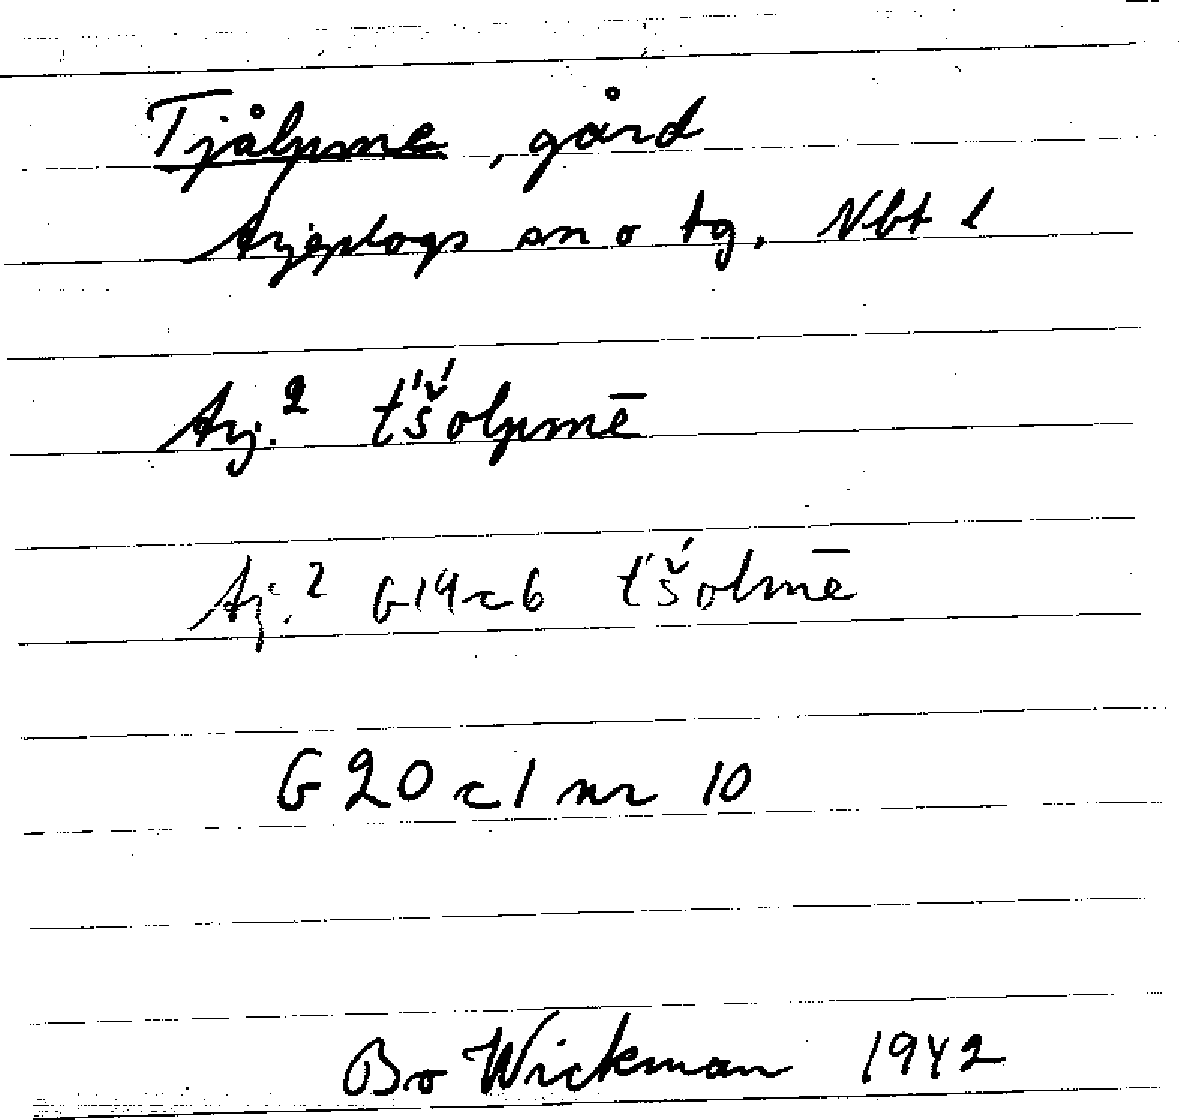 Tjålpme, gård
Arjeplogs sn o tg. Nbt l
Arj.² t́š́olpmē
Arj.² G19c6 t́š́olmē
G20c1 nr 10
Bo Wickman 1942